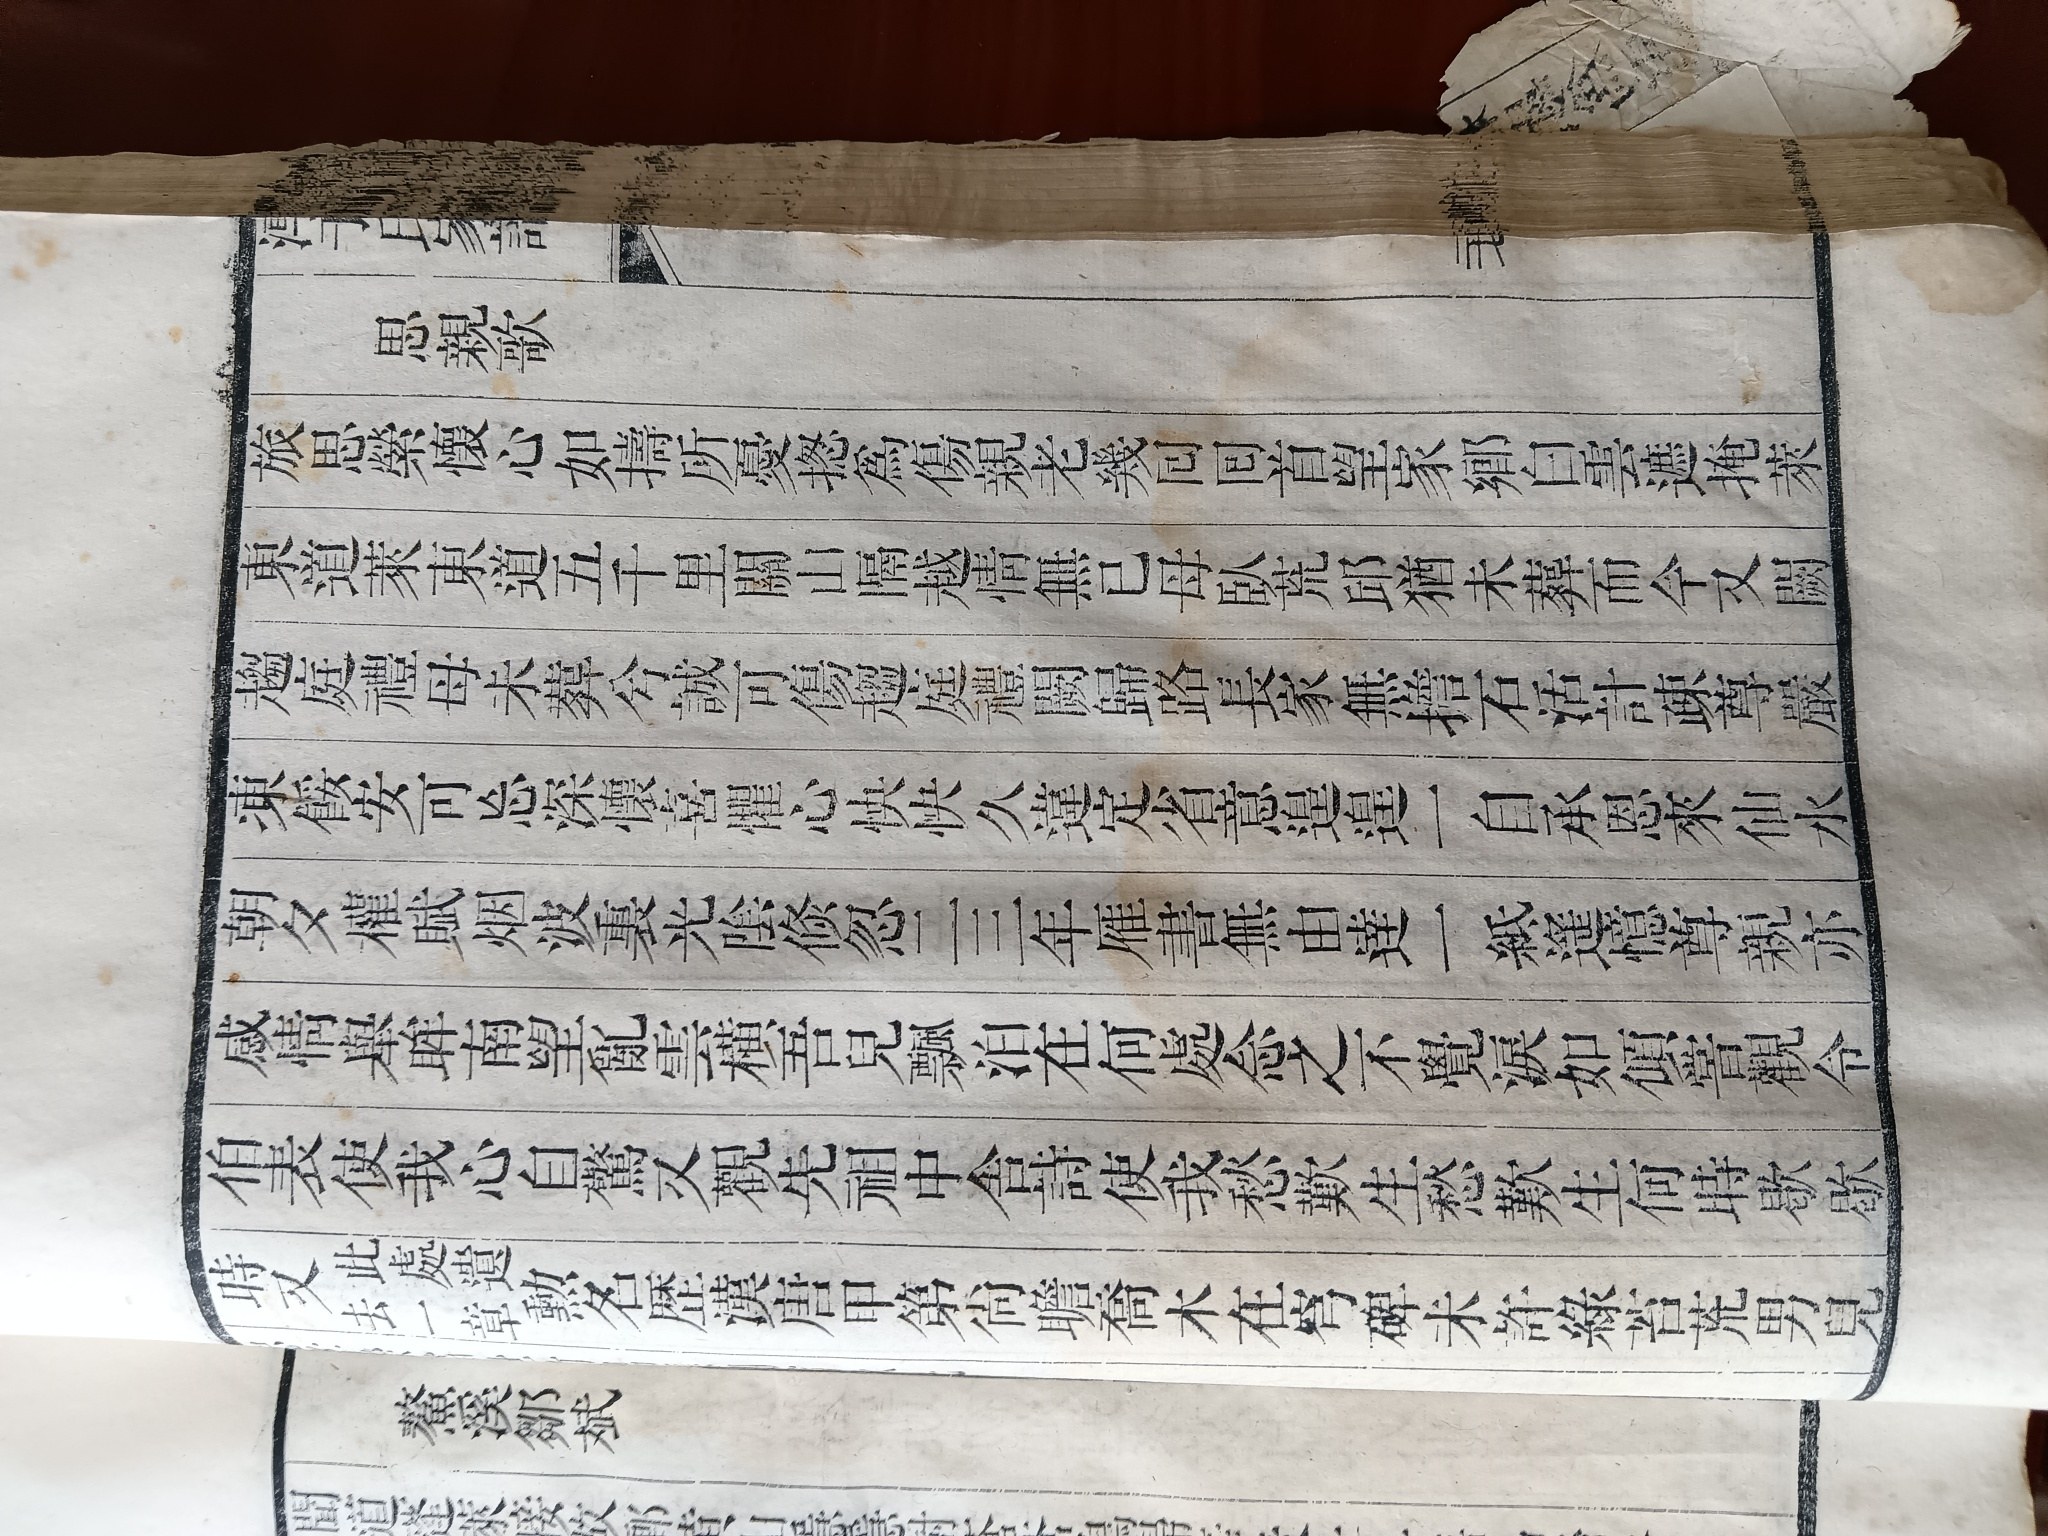 淳于氏家譜
思親歌
旅思縈懷心如擣所憂捴為傷親老幾回回首望家鄉白雲遮掩萊
東道萊東道五十里關山隔越情無已母臥荒邱猶未葬而今又闕
趨庭禮母未葬兮誠可傷趨庭禮闕歸路長家無擔石活計踈尊嚴
凍餒安可忘深懷喜懼心怏怏久違定省意遑遑一自承恩來仙水
朝夕櫂賦烟波裏光陰倏忽二三年雁書無由達一紙遙憶尊親亦
感情舉眸南望亂雲橫吾兒飄泊在何處念之不覺淚如傾嘗觀令
伯表使我心自驚又觀先祖中舍詩使我愁歎生愁歎生何時歇歇
時又此處遺去一章勳名歷漢唐甲第尚瞻喬木在穹碑未許綠苔荒男兒
鰲溪鄒斌